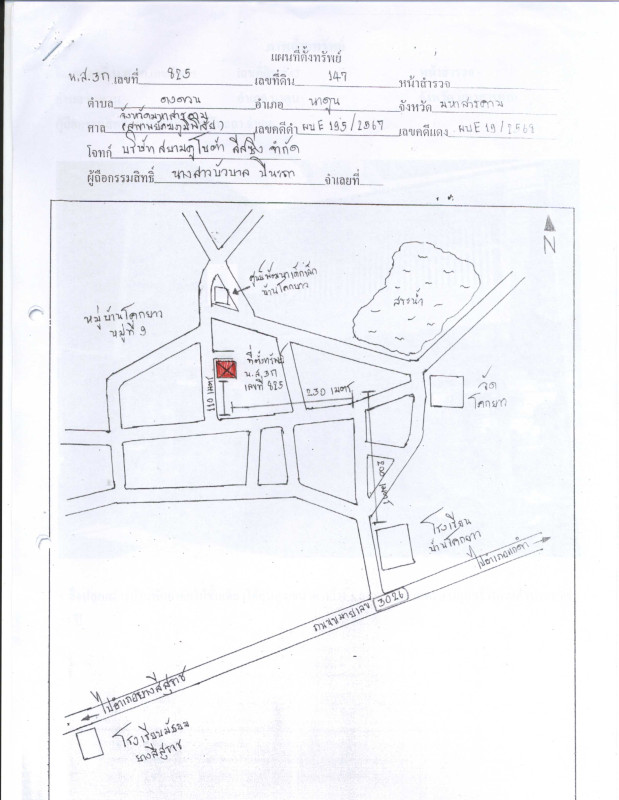 แผนที่ตั้งทรัพย์
น.ส.3ก เลขที่ 825 เลขที่ดิน 147 หน้าสำรวจ
ตำบล ดงดวน อำเภอ นาดูน จังหวัด มหาสารคาม
ศาล จังหวัดมหาสารคาม เลขคดีดำ ผบE 195/2567 เลขคดีแดง ผบE 19/2568
(สาขาพยัคฆภูมิพิสัย)
โจทก์ บริษัท สยามคูโบต้า ลีสซิ่ง จำกัด
ผู้ถือกรรมสิทธิ์ นางสาวบัวบาล จำเลยที่
N
ศูนย์พัฒนาเด็กเล็ก
บ้านโคกยาว
สระน้ำ
หมู่บ้านโคกยาว
หมู่ที่ 9
ที่ตั้งทรัพย์
น.ส.3ก
เลขที่ 825
110 เมตร
230 เมตร
วัด
โคกยาว
200 เมตร
โรงเรียน
บ้านโคกยาว
ไปอำเภอแกดำ
ถนนหมายเลข 3026
ไปอำเภอยางสีสุราช
โรงเรียนมัธยม
ยางสีสุราช